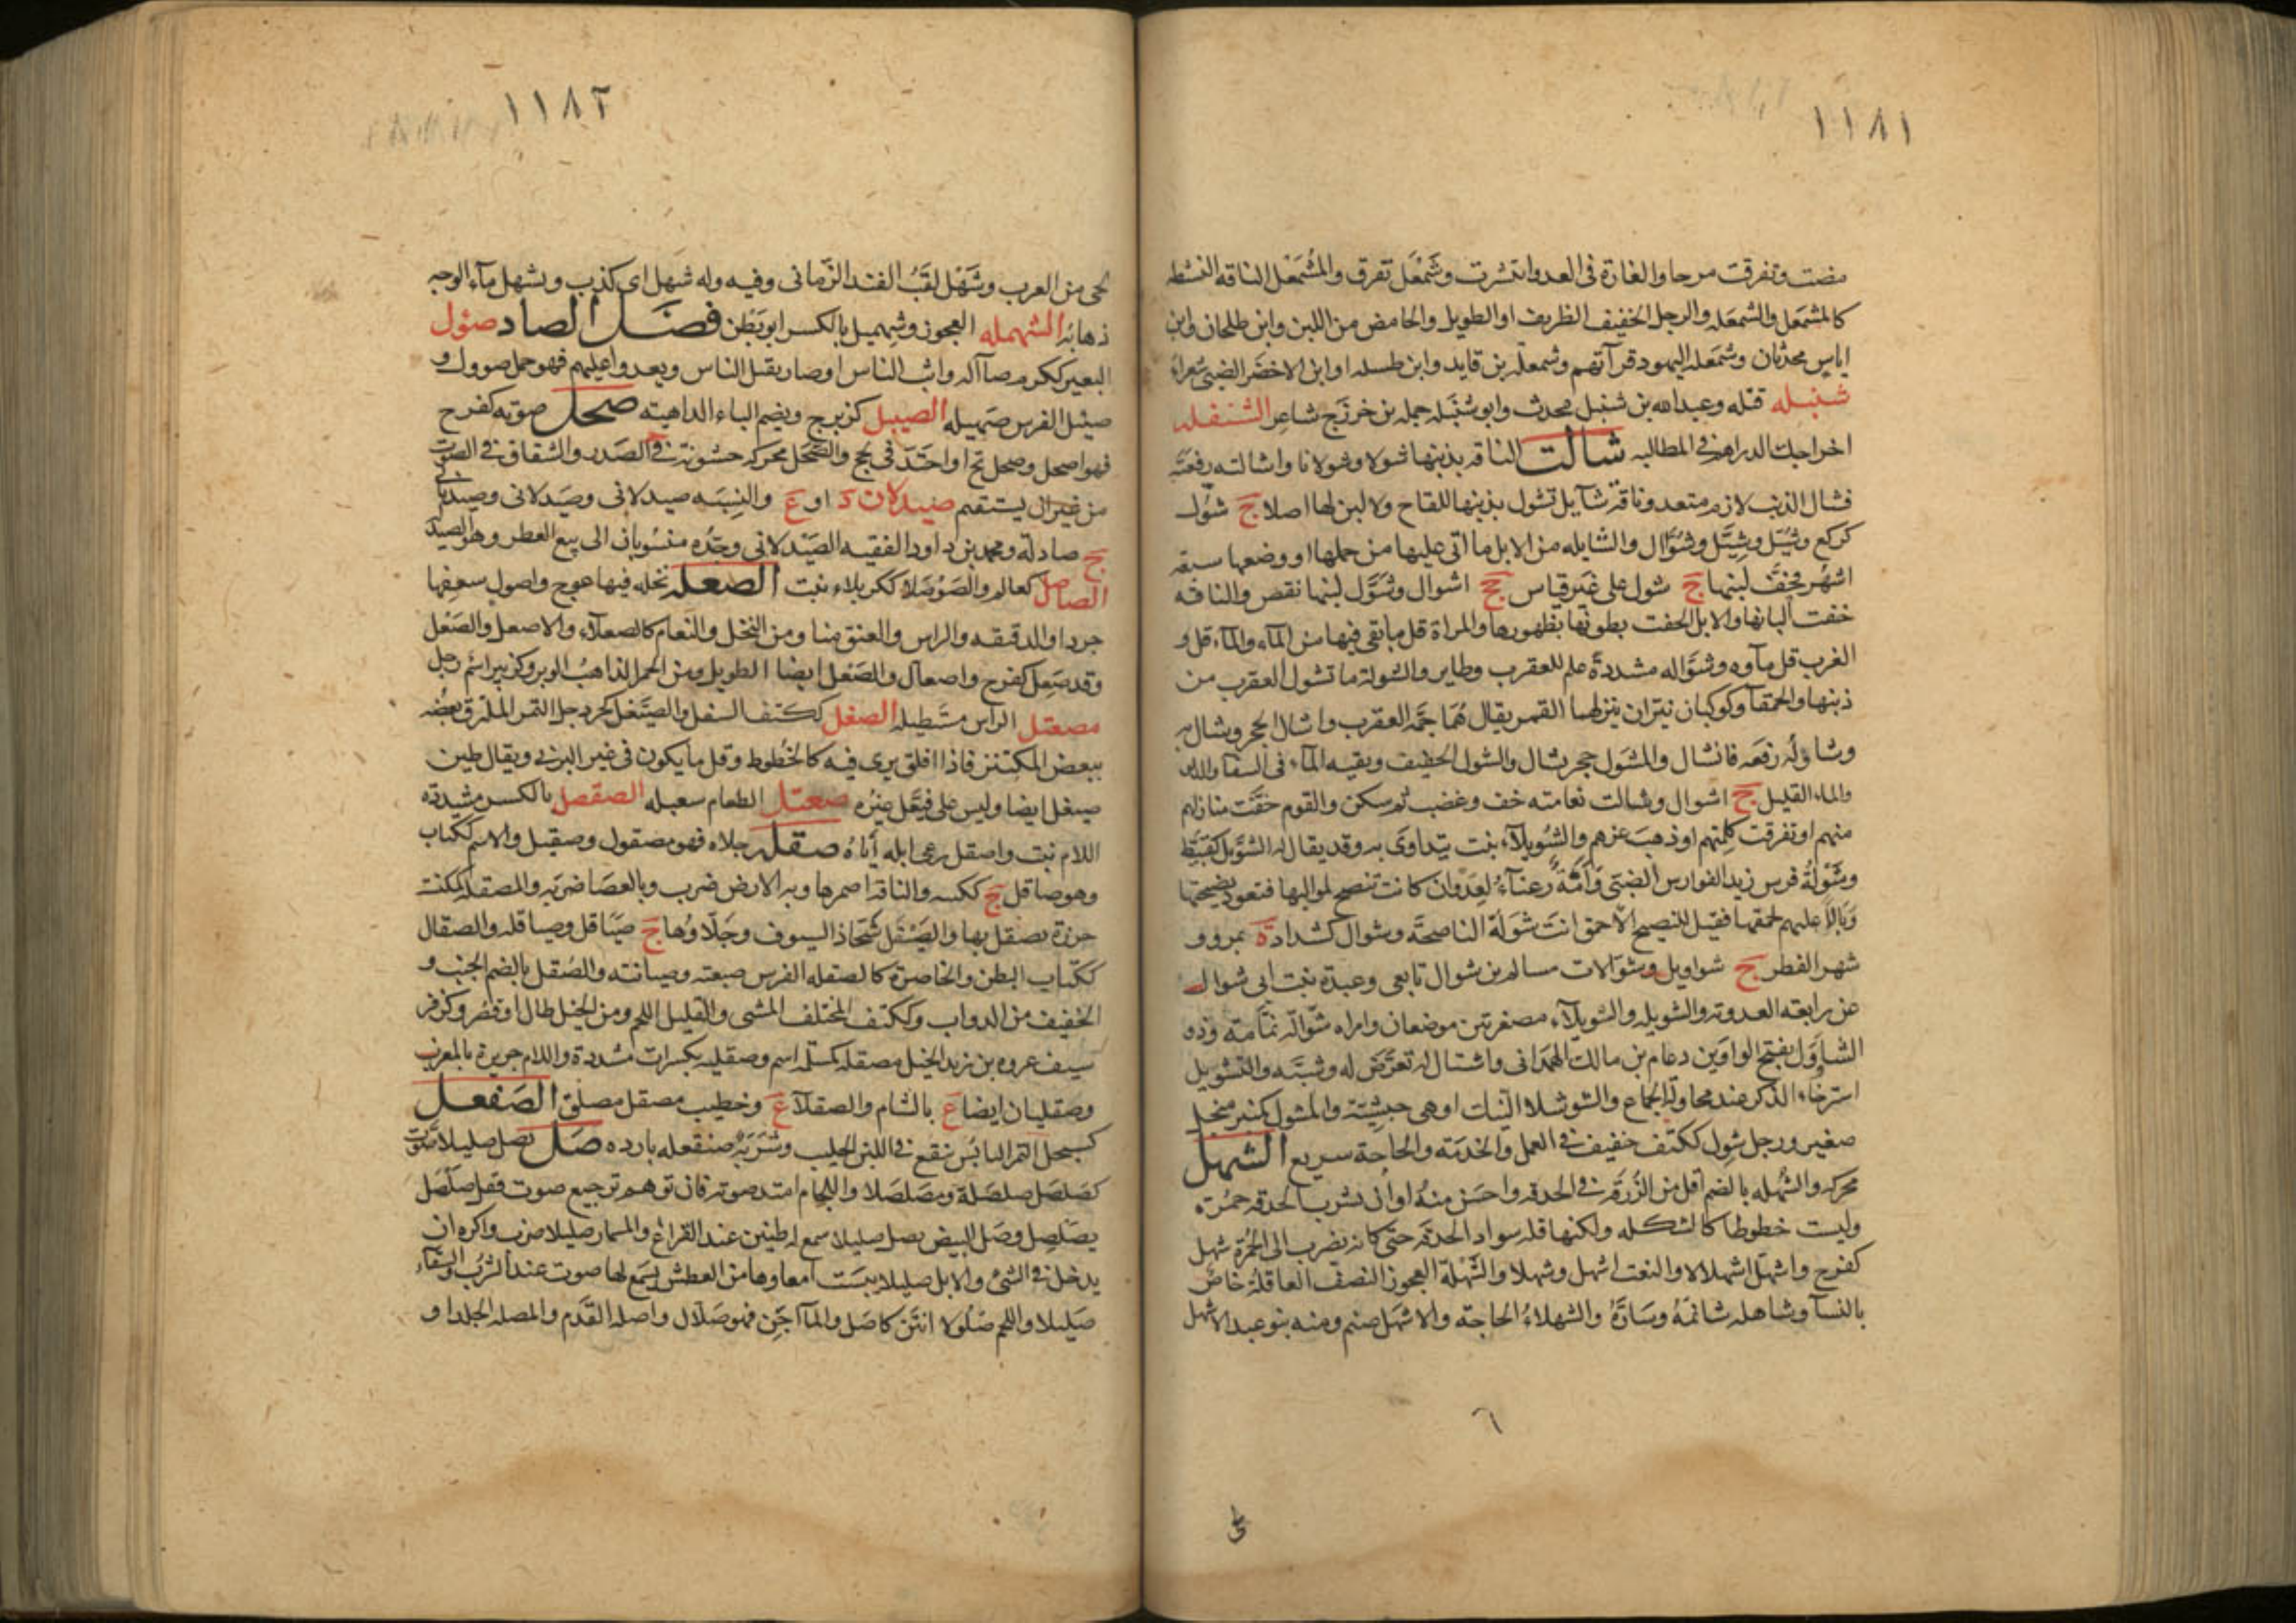 ١١٨١
مضت وتفرقت مرحا والغارة فى العدو انتشرت وشَمْعَل تفرق والمُشْمَعْل الناقه النشطه
كالمشمَعل والشمعَله والرجل الخفيف الظريف او الطويل والحامض من اللبن وابن طلحان وابن
اياس محدثان وشمعَلة اليهود قرآتهم وشمعلة بن قايد وابن طسله او ابن الاخضَر الضبى شعراء
شنبله قبّله وعبد الله بن شنبل محدث وابو شنبَله حمله بن خرزج شاعر الشنفله
اخراجك الدراهم فى المطالبه شالت الناقه بذنبها شولا وشولانا واشالته رفعَته
فشال الذنب لازم متعد وناقة شآيل تشول بذنبها للقاح ولا لبن لها اصلا ج شوُل
كركع وشُيَّل وشِيَّل وشُوَّال والشايله من الابل ما اتى عليها من حملها او وضعها سبعه
اشهر فخفَّ لبنها ج شول على غير قياس جج اشوال وشَوَّل لبنها نقص والناقه
خفت البانها والابل لحقت بطونها بظهورها والمراة قل ما بقى فيها من المآء والمآء قل و
الغرب قل مآوه وشوَّاله مشددةً علم للعقرب وطاير والشولة ما تشول العقرب من
ذنبها والحمقآ وكوكبان نيّران ينزلهما القمر يقال لهُمَا حُمَّة العقرب واشال الحجر وشال به
وشاوله رفعَه فانشال والمشوَل حجر يشال والشول الخفيف وبقيه المآء فى السقا والدلو
والماء القليل ج اشوال وشالت نعامته خف وغضب ثم سكن والقوم خفّت منازلهم
منهم او تفرقت كلمتهم او ذهبَ عزهم والشُويلآء نبت يتداوَى به وقد يقال له الشوَّيل كقُبَّيط
وشَوْلةُ فرس زيد الفوارس الضبّى وَأمَةٌ رعنآءُ لعَدْوان كانت تنصح لمواليها فتعود نصيحتها
وَبَالاً عليهم لحمقها فقيل للنصيح الاحمق انتَ شَولَة الناصحَّة وشوال كشداد ة بمرو و
شهر الفطر ج شواويل وشوّالات وسالم بن شوال تابعى وعبدة بنت ابى شوال
عن رابعه العدوته والشويله والشويلآء مصغرتين موضعان وامراه شوّالة نمّامة وذو
الشاوَل بفتح الواوَين دعام بن مالك الهمدانى واشتال له تعرَّض له وسَبَّه والتشويل
استرخاء الذكر عند محاولة الجماع والشوشلاء النبات او هى حبشيّة والمشول كمنبر منجل
صغير ورجل شوِل ككتف خفيف فى العمل والخدمته والحاجة سريع الشهل
محركه والشهله بالضم اقل من الزَّرَقه فى الحدقه واحسَن منهُ او ان تشرب الحدقه حمُرَة
وليست خطوطا كالشكله ولكنها قله سواد الحدقه حتى كانه يضرب الى الحُمْرة شهل
كفرح واشهلّ اشهلالا والنعت اشهل وشهلا والشَهلَة العجوز النصف العاقلةُ خاصٌ
بالنسآ وشاهله شاتمَهُ وسَارَّهُ والشهلاءُ الحاجه والاشهل صنم ومنه بنو عبد الاشهل
٦
لحى
١١٨٢
لحى من العرب وشَهْل لقَبُ الفند الزّمانى وفيه وله شهَل اى كذب وشهل مآء الوجه
ذهابه الشهمله العجوز وشهميل بالكسر ابو بَطْن فصل الصاد صؤل
البعير ككرم صآله واثب الناس او صار يقتل الناس ويعدو عليهم فهو حمل صوول و
صيئل الفرس صَهيله الصيبل كزبرج ويضم الباء الداهيته صحل صوته كفرح
فهو اصحل وصحل بحّ او احتَدّ فى بحج والصحَّل محركه خشونة فى الصَدر والشقاق فى الصوت
من غير ان يستقيم صيدلان د او ع والنِسبَه صيدلانى وصَيدلانى وصيدنانى
ج صيادلة ومحمد بن داود الفقيه الصيدلانى وجدّه منسُوبان الى بيع العطر وهو الصيدله
الصاصل كعالم والصَوصَلاء ككربلاء نبت الصعله نخله فيها عوج واصول سعفها
جرد او الدقيقه والراس والعنق منا ومن النخل والنعام كالصعلآء والاصعل والصَعْل
وقد صَعِل كفرح واصعالّ والصَعْل ايضا الطويل ومن الحمر الذاهبُ الوبر وكزبير اسم رجل
مصعتل الراس مستطيله الصغل ككتف السغل والصيّغل كجردحل التمر الملتزق بعضُه
ببعض المكتنز فاذا افلق يرى فيه كالخطوط وقل ما يكون فى غير البرنى ويقال طين
صيغل ايضا وليس على فيعَّل غيره صعتل الطعام سعبله الصقصل بالكسر مشددة
اللام نبت واصقل رعى ابله أيّاهُ صقله جلاه فهو مصقول وصقيل والاسم ككتاب
وهو صاقل ج ككسه والناقه اضمرها وبه الارض ضرب وبالعصَا ضربه والمصقله كمكنسه
خرزة يصقل بها والصَيْقَل شَحّاذ السيوف وجَلّاوُها ج صَيَاقل وصياقله والصقال
ككتاب البطن والخاصرة كالصقله الفرس صبعته وصيانته والصُقل بالضم الجنب و
الخفيف من الدواب وككتف المختلف المشى والقليل اللحم ومن الخيل طال او قصُر وكزفر
سيف عروه بن زيد الخيل مصقله كمَسلمه اسم وصقليه بكسرات مشددة واللام جزيرة بالمغرب
وصقليان ايضا ع بالشام والصقلآ ع وخطيب مصقل مصلق الصَفعل
كسبحل التمر اليابُس ينقع فى اللبن الحليب وشربَة صنقعله بارده صَلّ يصل صليلا صَوّت
كصَلصَل صلصَلة ومصَلصَلا واللجام امتد صوته فان توهم ترجيع صوت فقل صَلْصَل
يصَلصِل وصَل البيض يصل صليلا سمع له طنين عند القراع والمسمار صليلا ضرب واكره ان
يدخل فى الشئ والابل صليلا يبسَت امعاوها من العطش يسمَع لها صوت عند الشرب والسقآء
صَليلا واللحم صُلُولا انتَن كاصَل والمآ اجَن فهو صَلّال واصله القَدَم والمصله الجلد او